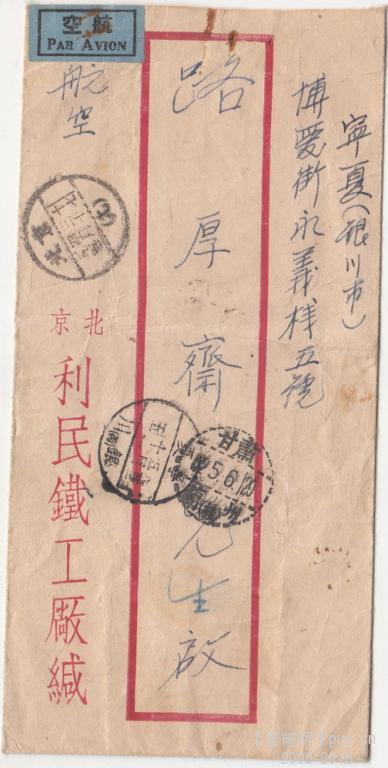 航空
PAR AVION
寧夏(銀川市)
博愛街永義棧五號
路厚齋先生啟
航空
北京
利民鐵工廠緘
甘肅